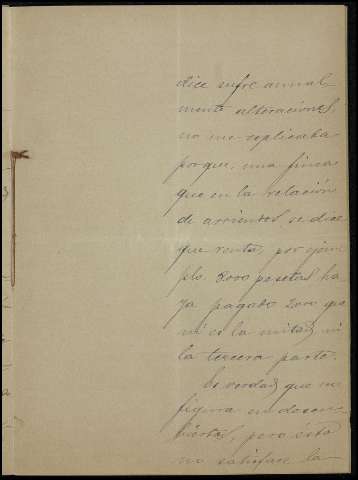 dice sufre anual-
mente alteraciones,
no me esplicaba
porque, una finca
que en la relación
de arriendos se dice
que renta, por ejem-
plo 8000 pesetas ha-
ya pagado 2000 que
ni es la mitad, ni
la tercera parte.
Es verdad, que se
figura en descu-
biertos, pero ésto
no satisface la